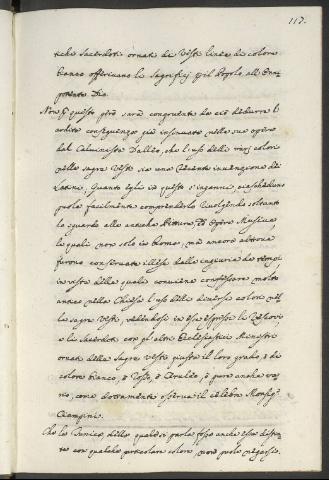 117.
tichi Sacerdoti ornati di Veste linea di colore
bianco offerivano li Sagrificj p il Popolo all' Onni-
potente Dio.
Non p questo però sarà congruente da ciò dedurre l'
ardita conseguenza già insinuata nelle sue opere
dal Calvinista Dalleo, che l'uso delli varj colori
nelle sagre Vesti sia una recente invenzione de'
Latini; Quanto egli in questo s'inganni, ciascheduno
puole facilmente comprenderlo rivolgendo soltanto
lo sguardo alle antiche Pitture, ed Opere Musaice,
le quali non solo in Roma, mà ancora altrove
furono conservate illese dalla ingiuria de tempi
in vista delle quali conviene confessare molto
antico nella Chiesa l'uso delli diversi colori nel-
le sagre Vesti, vedendosi in esse espressi li Vescovi,
e li Sacerdoti con gl'altri Ecclesiastici Ministri
ornati della Sagre Vesti giusto il loro grado, ò di
colore bianco, ò rosso, ò ceruleo, ò pure anche va-
rio, come dottamente osserva il celebre Monsig.
Ciampini.
Che la Tunica, della quale si parla fosse anche essa distin-
ta con qualche particolare colore, non puole negarsi,